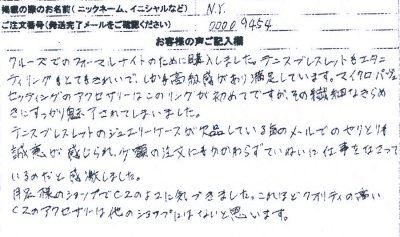 掲載の際のお名前(ニックネーム、イニシャルなど) N.Y.
ご注文番号(発送完了メールをご確認ください) 00009454
お客様の声ご記入欄
クルーズでのフォーマルナイトのために購入しました。テニスブレスレットもエタニ
ティリングもとてもきれいで、しかも高級感があり満足しています。マイクロパヴェ
セッティングのアクセサリーはこのリングが初めてですが、その繊細なきらめ
きにすっかり魅了されてしまいました。
テニスブレスレットのジュエリーケースが欠品している旨のメールでのやりとりも
誠意が感じられ、少額の注文にもかかわらずていねいに仕事をなさって
いるのだと感激しました。
様のショップでCZのよさに気づきました。これほどクオリティの高い
CZのアクセサリーは他のショップにはないと思います。